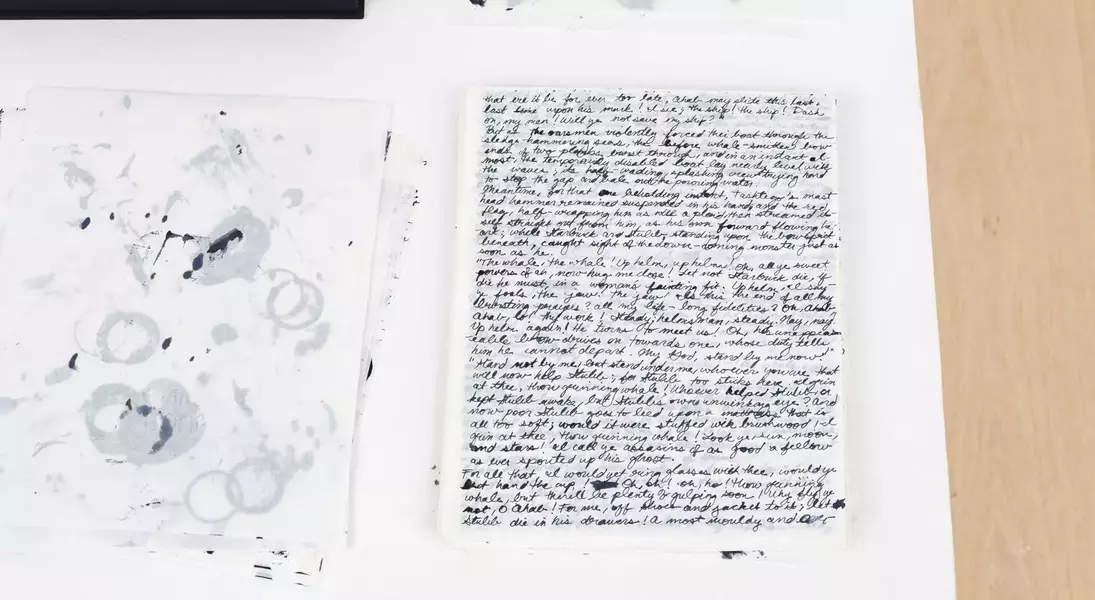 that ere it be for ever too late, Ahab may slide this last,
last time upon his mark! I see; the ship! the ship! Dash
on, my men! Will ye not save my ship?"
But as the oarsmen violently forced their boat through the
sledge-hammering seas, the before whale-smitten bow-
ends of two planks burst through, and in an instant al-
most, the temporarily disabled boat lay nearly level with
the waves; its half-wading, splashing crew, trying hard
to stop the gap and bale out the pouring water.
Meantime, for that one beholding instant, Tashtego's mast
head hammer remained suspended in his hand; and the red
flag, half-wrapping him as with a plaid, then streamed it-
self straight out from him, as his own forward-flowing he
art; while Starbuck and Stubb, standing upon the bowsprit
beneath, caught sight of the down-coming monster just as
soon as he.
"The whale, the whale! Up helm, up helm! Oh, all ye sweet
powers of air, now hug me close! Let not Starbuck die, if
die he must, in a woman's fainting fit. Up helm, I say
ye fools, the jaw! the jaw! Is this the end of all my
bursting prayers? all my life-long fidelities? Oh, Ahab,
Ahab, lo, thy work! Steady! helmsman, steady. Nay, nay!
Up helm again! He turns to meet us! Oh, his unappeas
eable brow drives on towards one, whose duty tells
him he cannot depart. My God, stand by me now!"
"Stand not by me, but stand under me, whoever you are that
will now help Stubb; for Stubb, too, sticks here. I grin
at thee, thou grinning whale! Who ever helped Stubb, or
kept Stubb awake, but Stubb's own unwinking eye? And
now poor Stubb goes to bed upon a mattress that is
all too soft; would it were stuffed with brushwood! I
grin at thee, thou grinning whale! Look ye, sun, moon,
and stars! I call ye assassins of as good a fellow
as ever spouted up his ghost.
For all that, I would yet ring glasses with thee, would ye
but hand the cup! Oh, oh! oh, ho! thou grinning
whale, but there'll be plenty of gulping soon! Why fly ye
not, O Ahab! For me, off shoes and jacket to it; let
Stubb die in his drawers! A most mouldy and